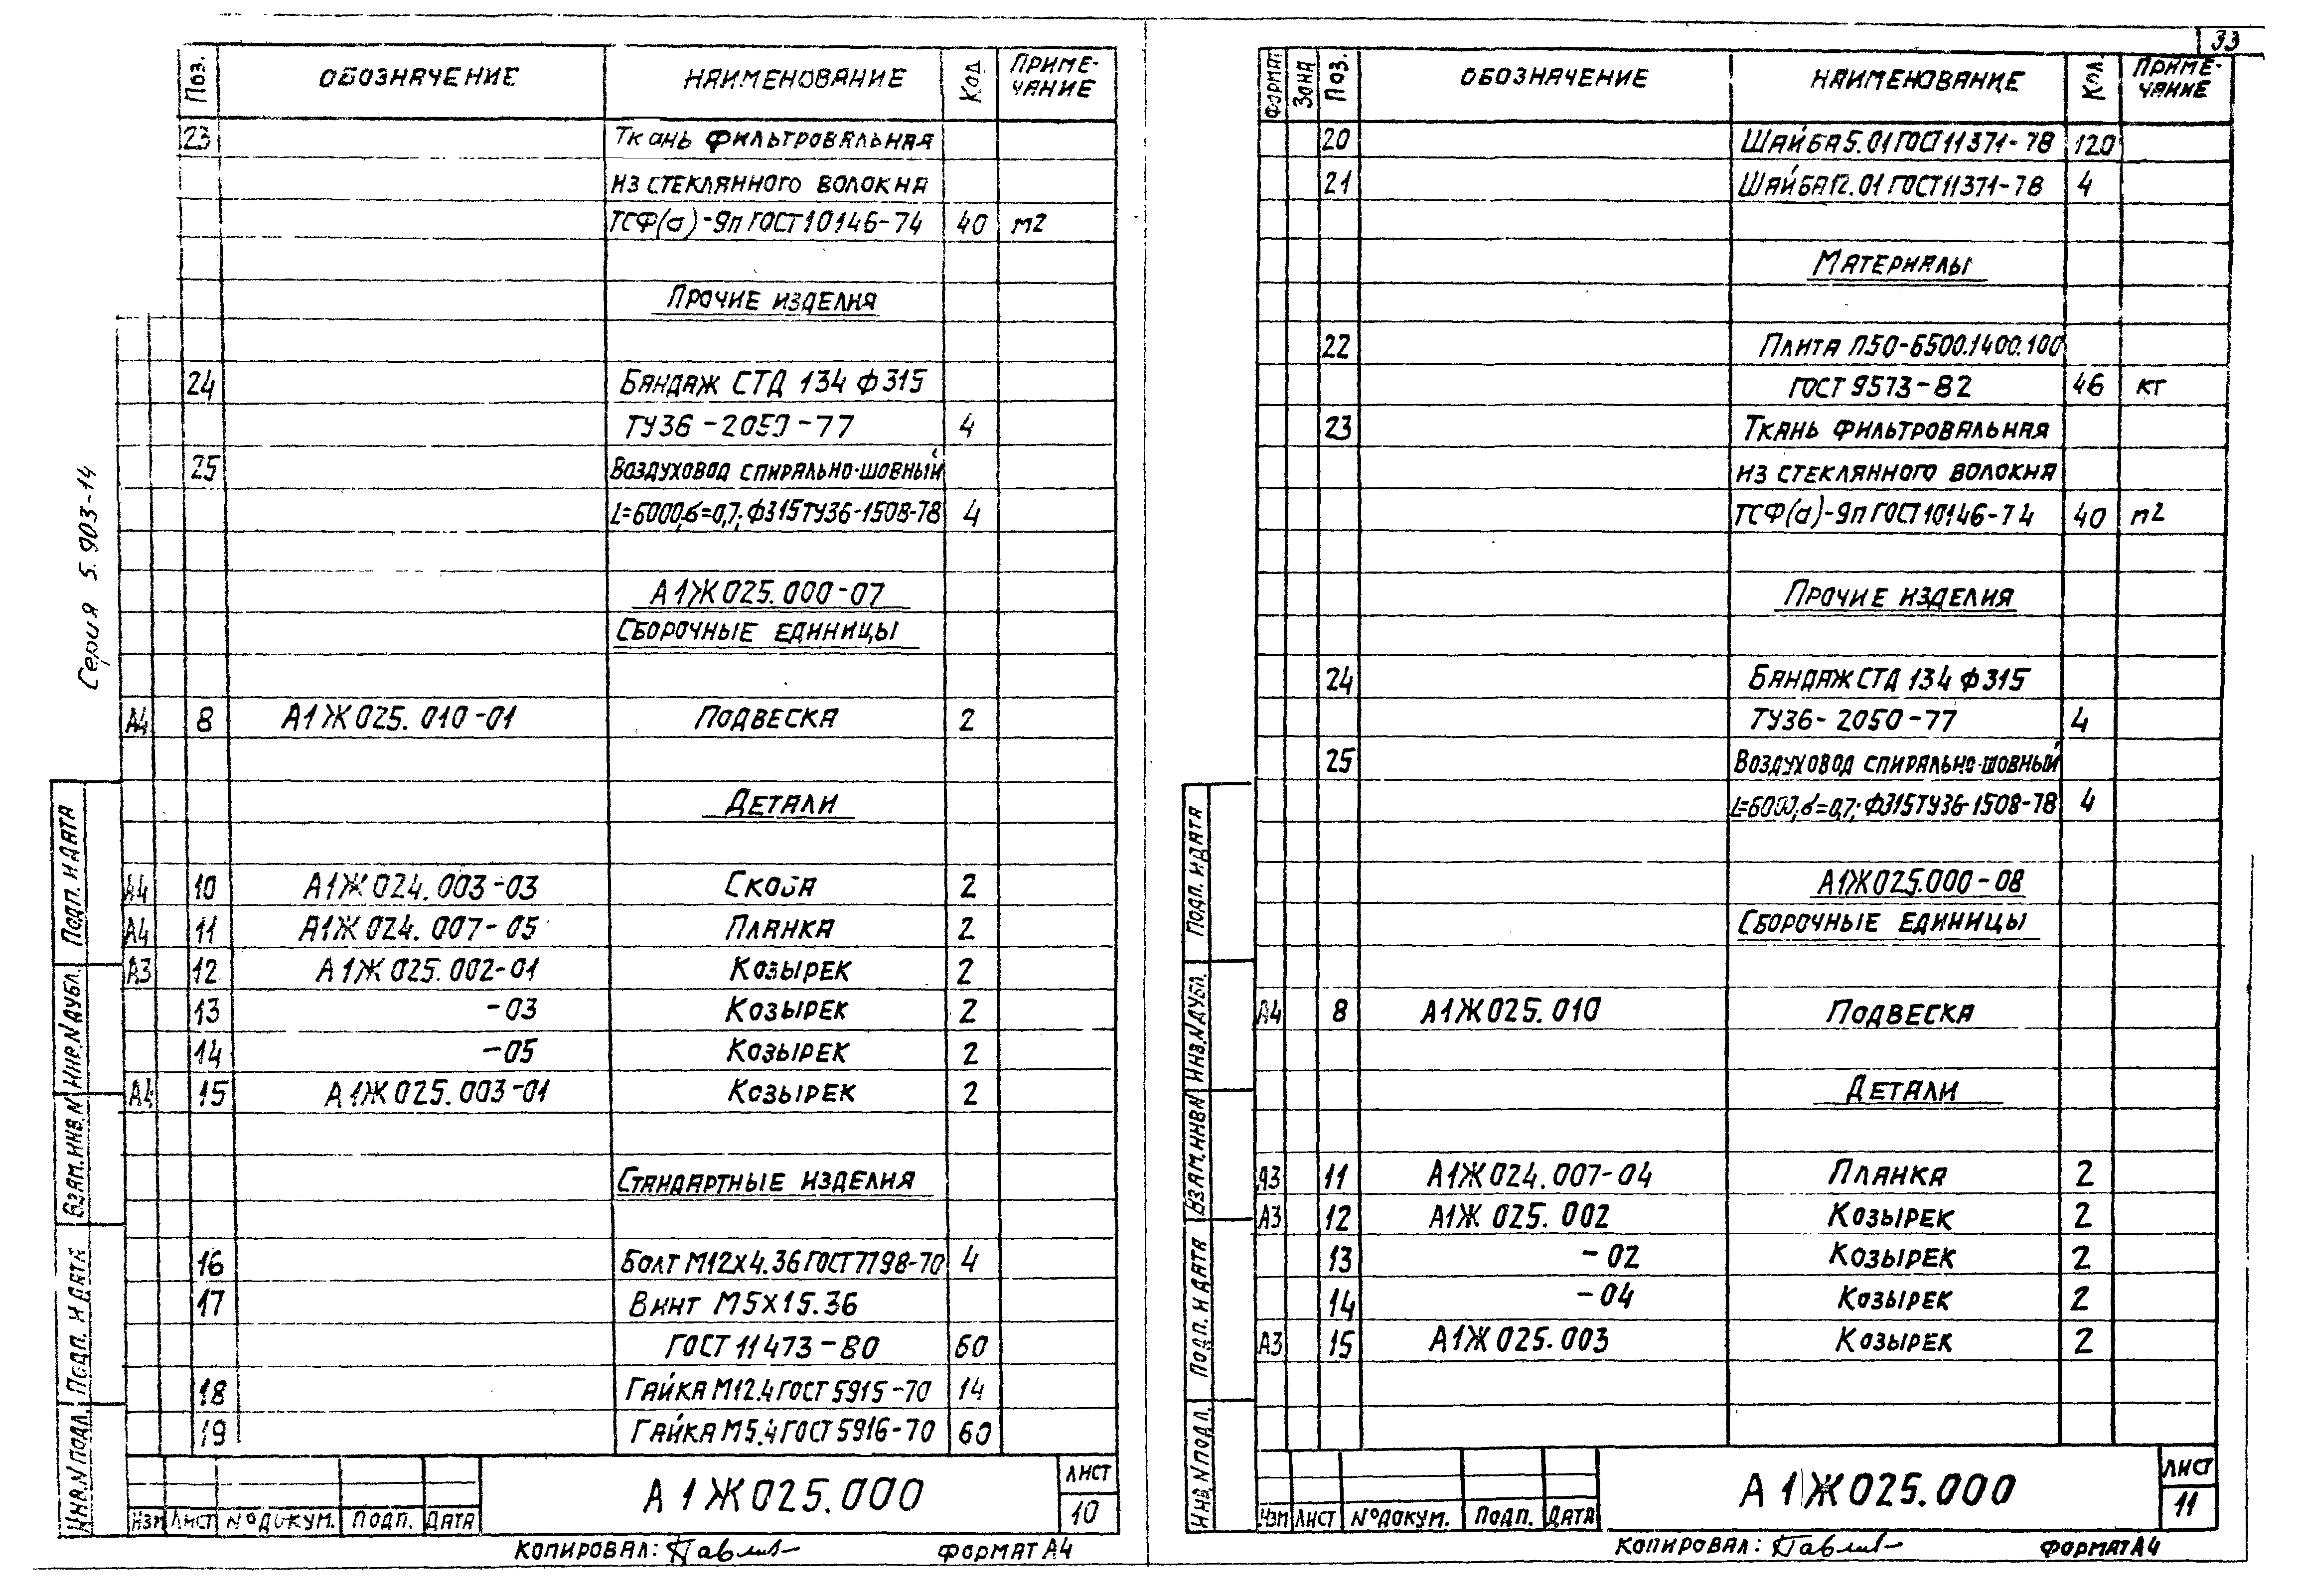 33
Серия 5.903-14
Поз. ОБОЗНАЧЕНИЕ НАИМЕНОВАНИЕ Кол ПРИМЕ-
ЧАНИЕ
23 Ткань фильтровальная
из стеклянного волокна
ТСФ(а)-9п ГОСТ 10146-74 40 м2
Прочие изделия
24 Бандаж СТД 134 ф315
ТУ36-2050-77 4
25 Воздуховод спирально-шовный
L=6000,б=0,7; Ф315 ТУ36-1508-78 4
А1Ж025.000-07
Сборочные единицы
А4 8 А1Ж025.010-01 Подвеска 2
Детали
А4 10 А1Ж024.003-03 Скоба 2
А4 11 А1Ж024.007-05 Планка 2
А3 12 А1Ж025.002-01 Козырек 2
13 -03 Козырек 2
14 -05 Козырек 2
А4 15 А1Ж025.003-01 Козырек 2
Стандартные изделия
16 Болт М12х4.36 ГОСТ 7798-70 4
17 Винт М5х15.36
ГОСТ 11473-80 60
18 Гайка М12.4 ГОСТ 5915-70 14
19 Гайка М5.4 ГОСТ 5916-70 60
Подп. и дата
Инв.N дубл.
Взам.инв.N
Подп. и дата
Инв.N подл.
Изм Лист N° докум. Подп. Дата
А1Ж025.000
Лист
10
Копировал: Формат А4
Формат Зона Поз. ОБОЗНАЧЕНИЕ НАИМЕНОВАНИЕ Кол. ПРИМЕ-
ЧАНИЕ
20 Шайба 5.01 ГОСТ 11371-78 120
21 Шайба 12.01 ГОСТ 11371-78 4
Материалы
22 Плита П50-6500.1400.100
ГОСТ 9573-82 46 кг
23 Ткань фильтровальная
из стеклянного волокна
ТСФ(а)-9п ГОСТ 10146-74 40 м2
Прочие изделия
24 Бандаж СТД 134 ф315
ТУ36-2050-77 4
25 Воздуховод спирально-шовный
L=6000,б=0,7; Ф315 ТУ36-1508-78 4
А1Ж025.000-08
Сборочные единицы
А4 8 А1Ж025.010 Подвеска
Детали
А3 11 А1Ж024.007-04 Планка 2
А3 12 А1Ж025.002 Козырек 2
13 -02 Козырек 2
14 -04 Козырек 2
А3 15 А1Ж025.003 Козырек 2
Подп. и дата
Инв.N дубл.
Взам.инв.N
Подп. и дата
Инв.N подл.
Изм Лист N° докум. Подп. Дата
А1Ж025.000
Лист
11
Копировал: Формат А4